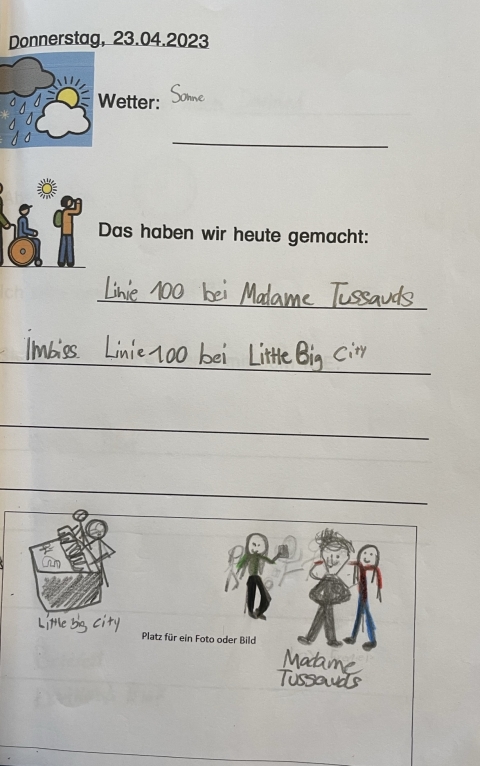 Donnerstag, 23.04.2023
Wetter: Sonne
Das haben wir heute gemacht:
Linie 100 bei Madame Tussauds
Imbiss Linie 100 bei Little Big City
Little big City
Platz für ein Foto oder Bild
Madame
Tussauds